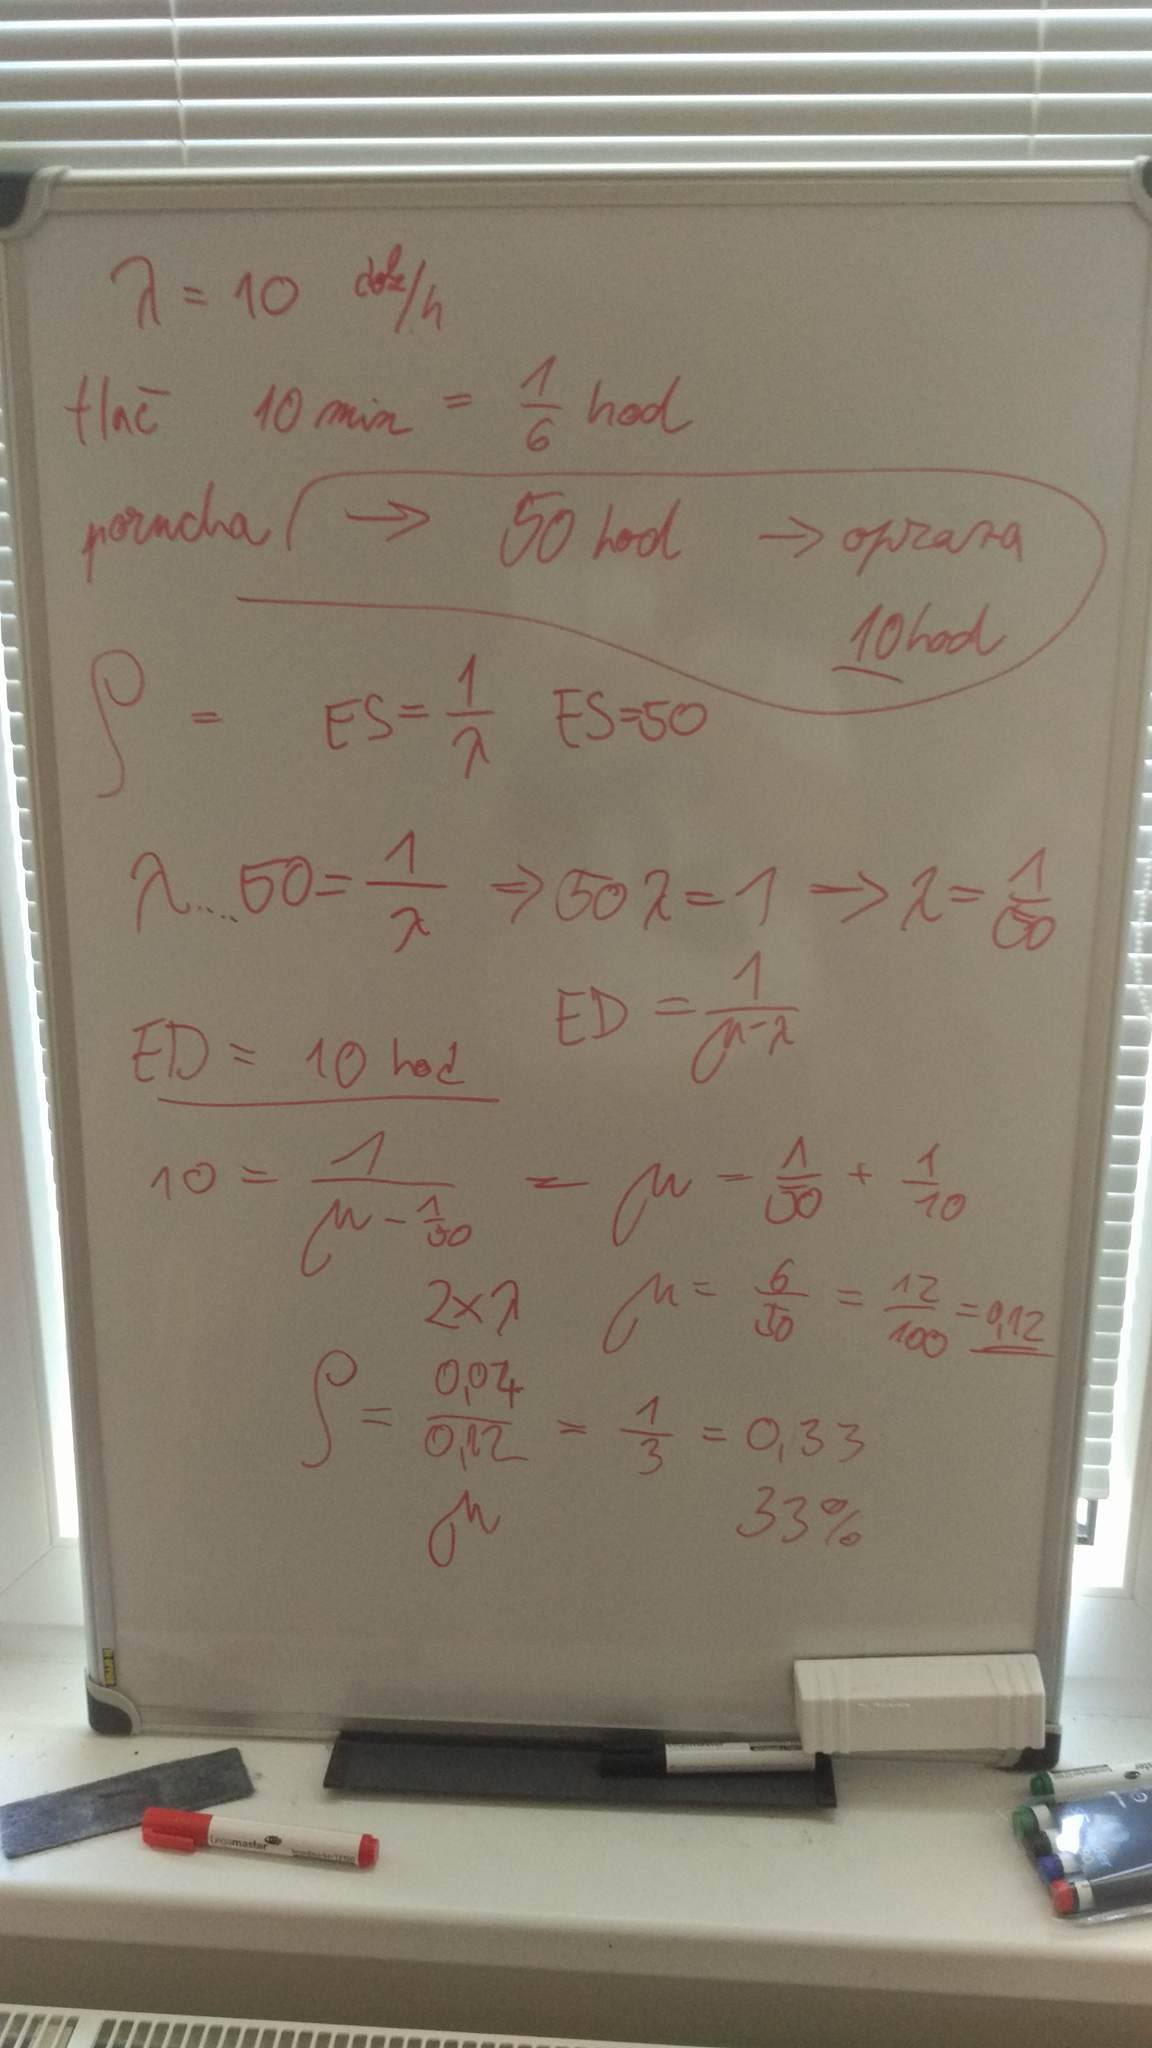 λ = 10 dok/h
tlač 10 min = 1/6 hod
porucha → 50 hod → oprava
10 hod
ρ = ES = 1/λ ES = 50
λ.... 50 = 1/λ ⇒ 50λ = 1 → λ = 1/50
ED = 1/(μ-λ)
ED = 10 hod
10 = 1/(μ - 1/50) = μ = 1/50 + 1/10
2×λ μ = 6/50 = 12/100 = 0,12
ρ = 0,04/0,12 = 1/3 = 0,33
μ 33%
Legamaster